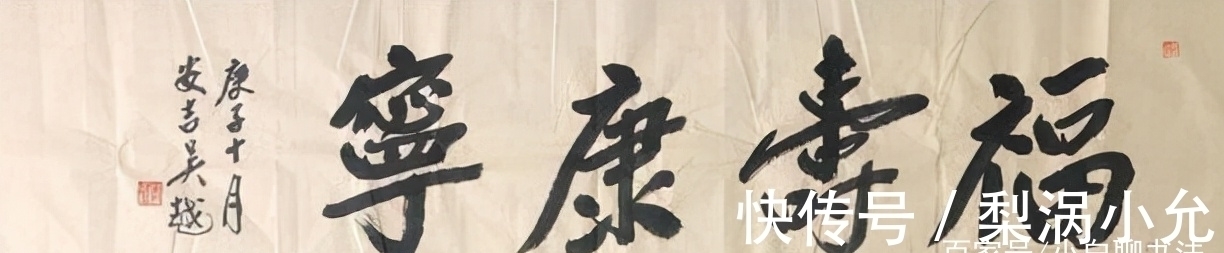 福寿康寧
庚子十月
安吉吴越
快传号/梨涡小允
百家号/小白聊书法